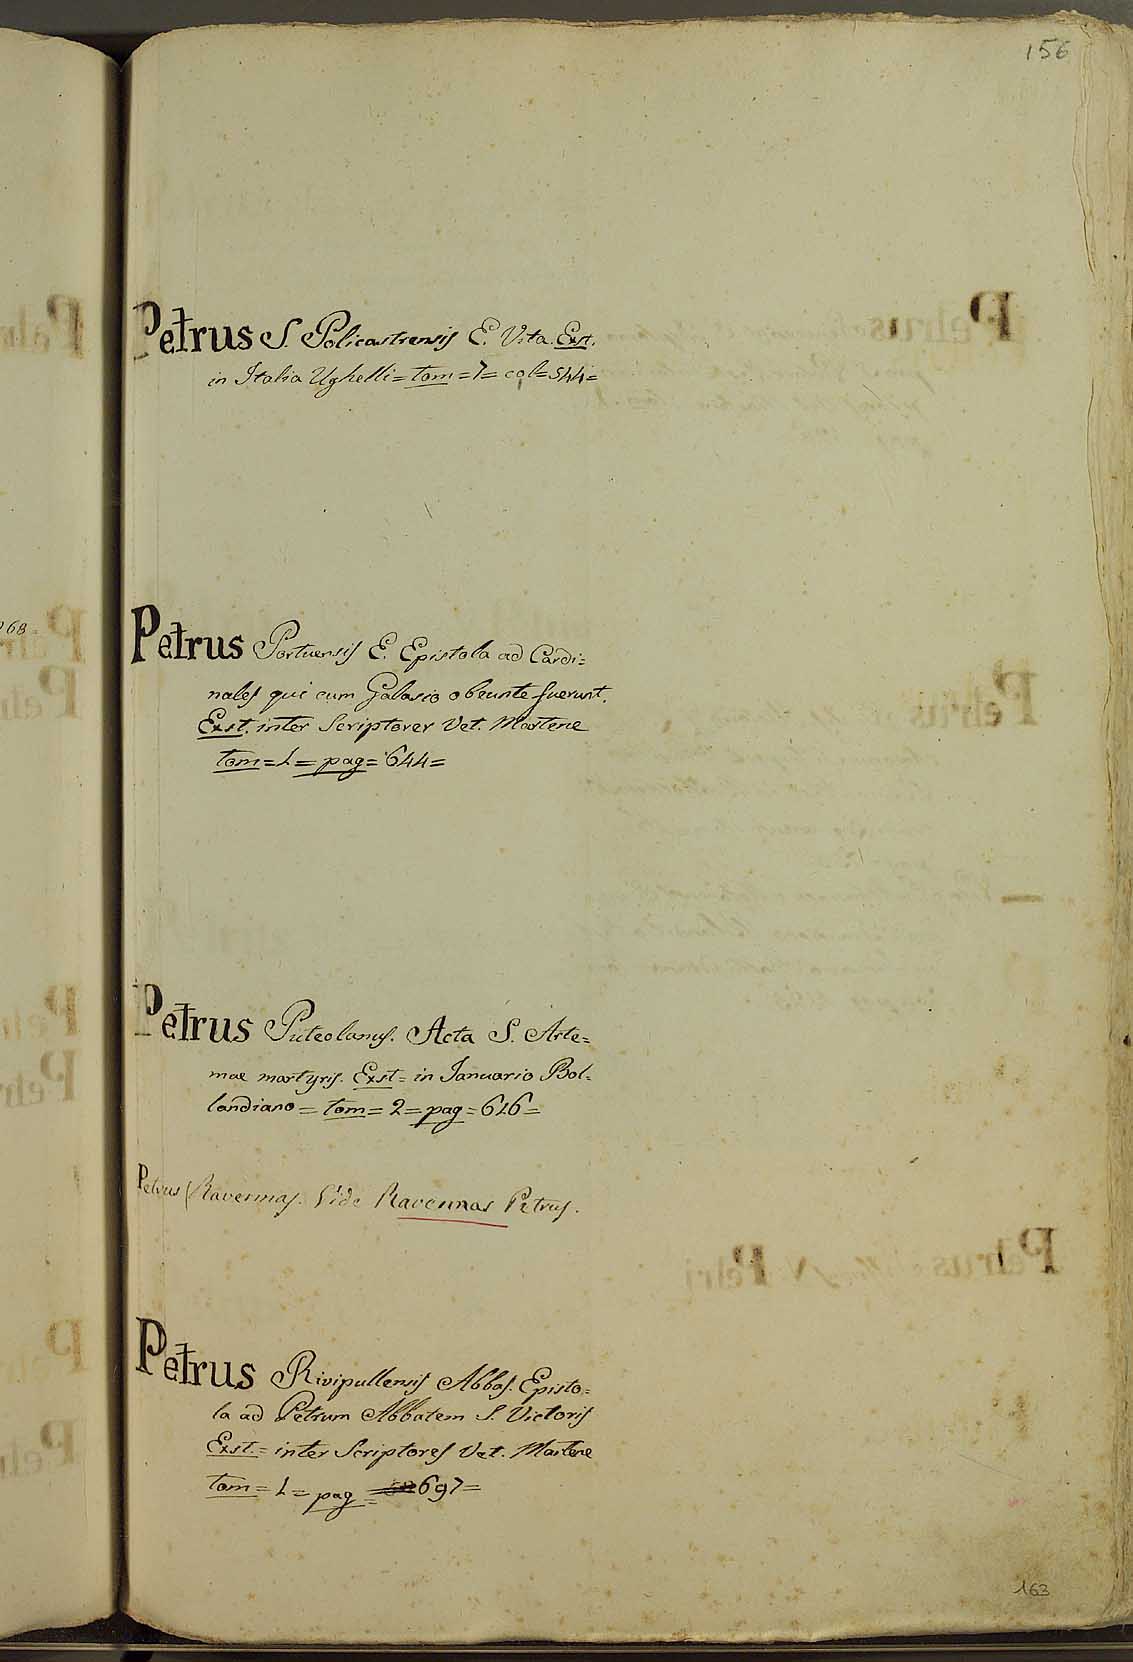 156
Petrus S. Policastrensis E. Vita. Exst.
in Italia Ughelli = tom = 7 = col = 544 =
Petrus Portuensis E. Epistola ad Cardi=
nales qui cum Galasio obeunte fuerunt.
Exst. inter Scriptores Vet. Martene
tom = 1 = pag = 644 =
Petrus Puteolanus. Acta S. Arte=
mae martyris. Exst = in Januario Bol=
landiano = tom = 2 = pag = 616 =
Petrus Ravennas. Vide Ravennas Petrus.
Petrus Rivipullensis Abbas. Episto=
la ad Petrum Abbatem S. Victoris
Exst. = inter Scriptores Vet. Martene
tom = 1 = pag = 697 =
163